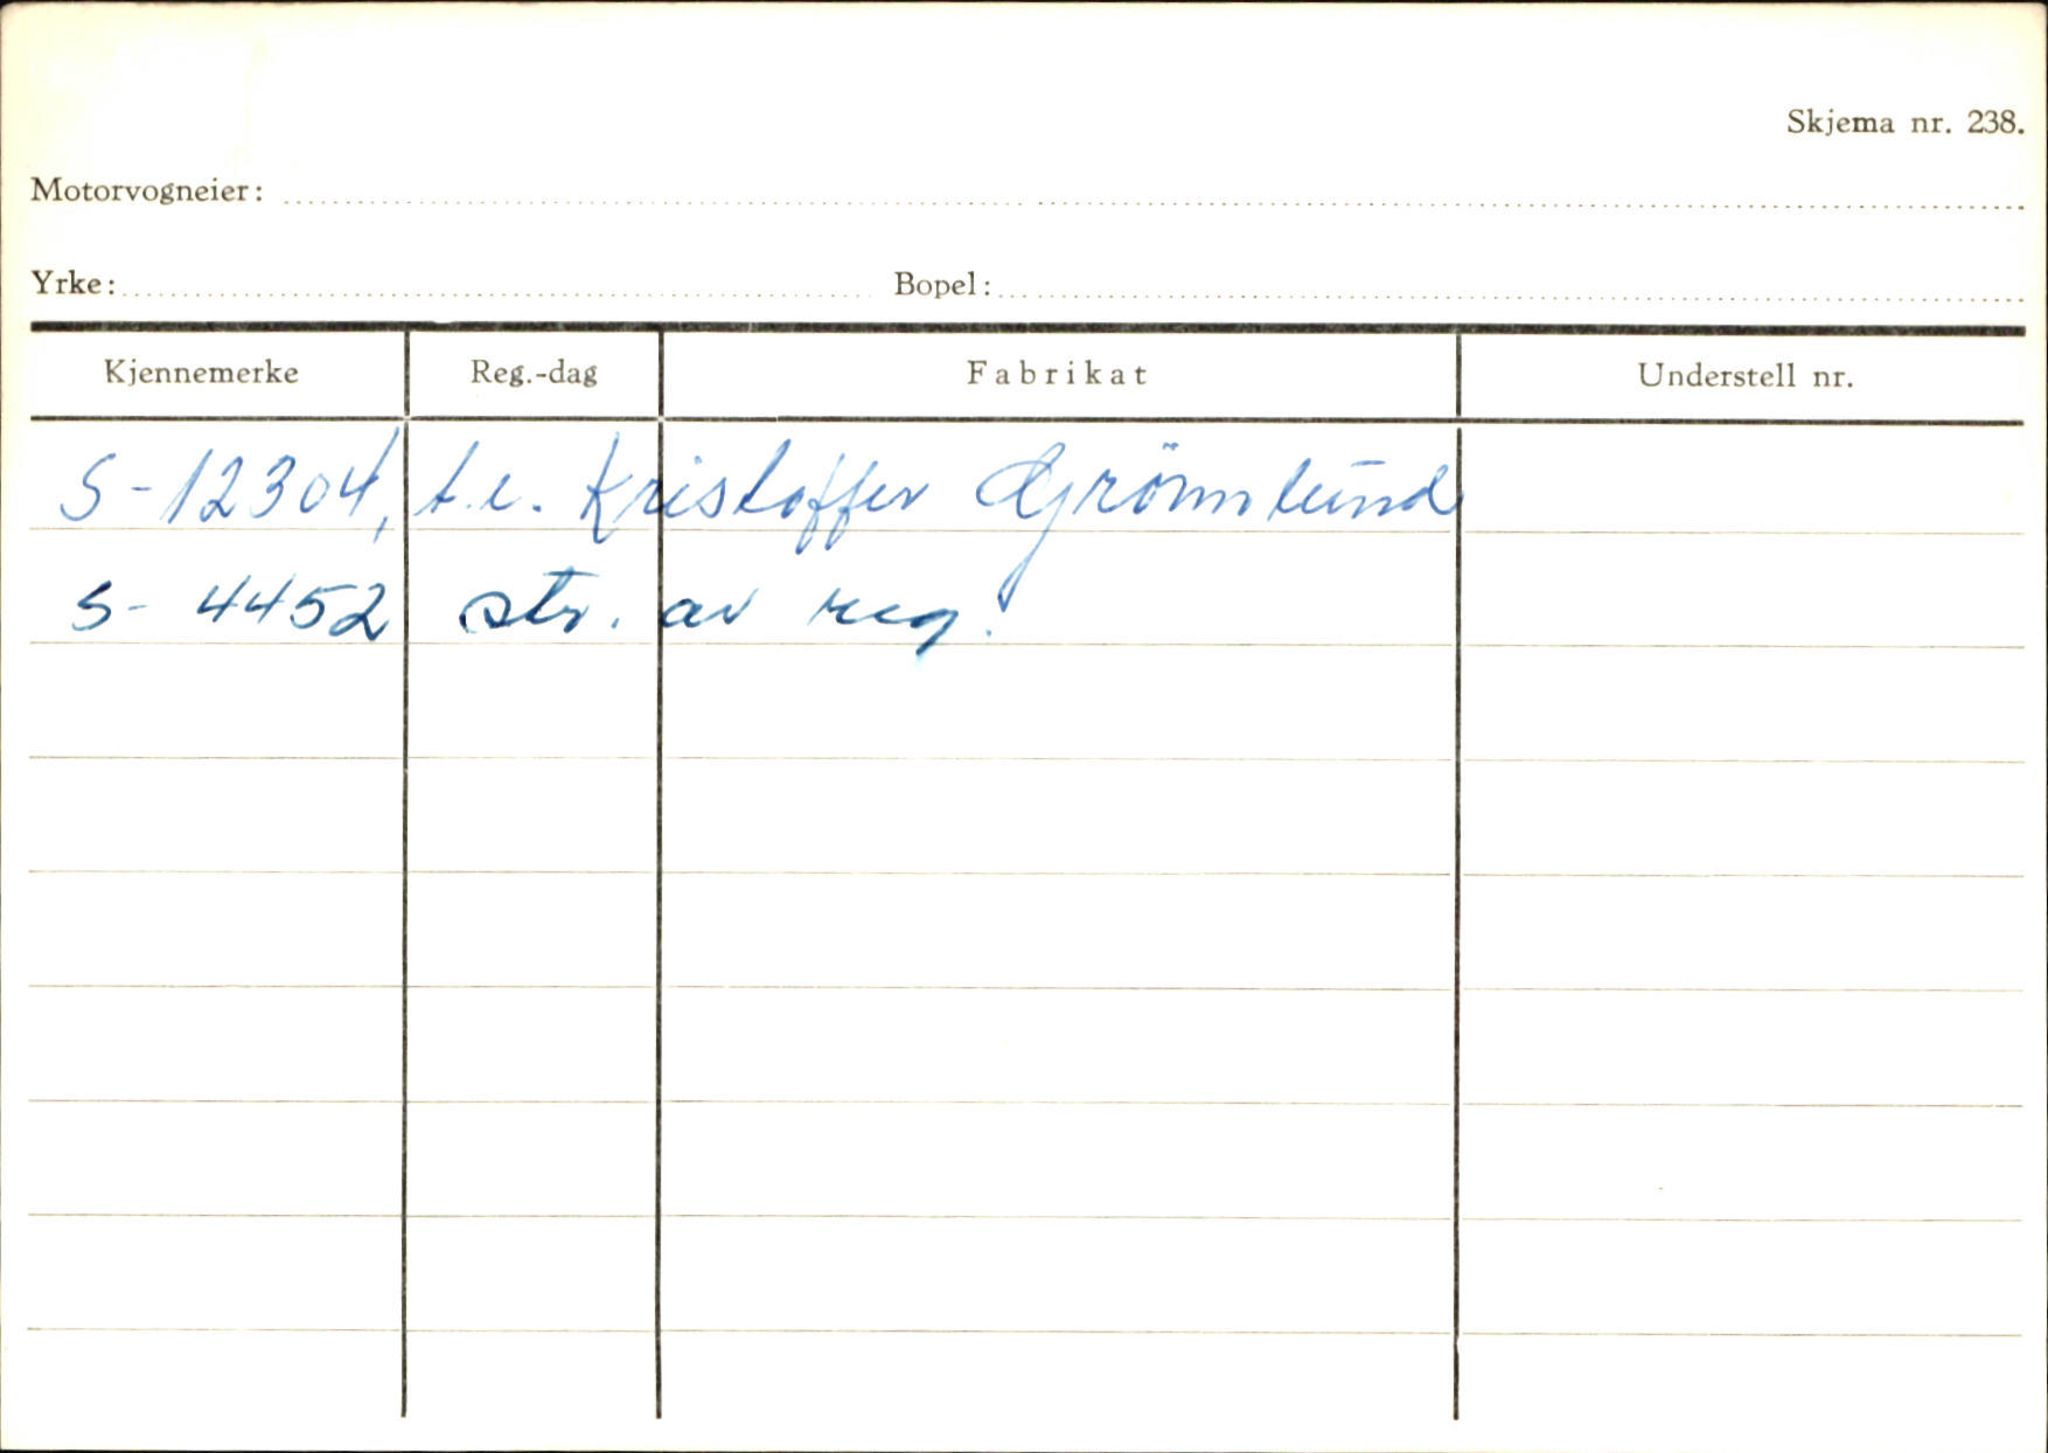 Skjema nr. 238.
Motorvogneier:
Yrke: Bopel:
Kjennemerke Reg.-dag Fabrikat Understell nr.
S-12304, t.e. Kristoffer Grönnlund
S- 4452 str. av reg.